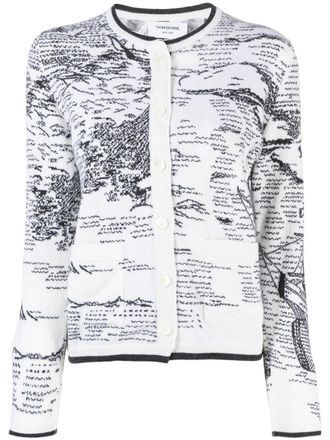 THOM BROWNE
NEW YORK